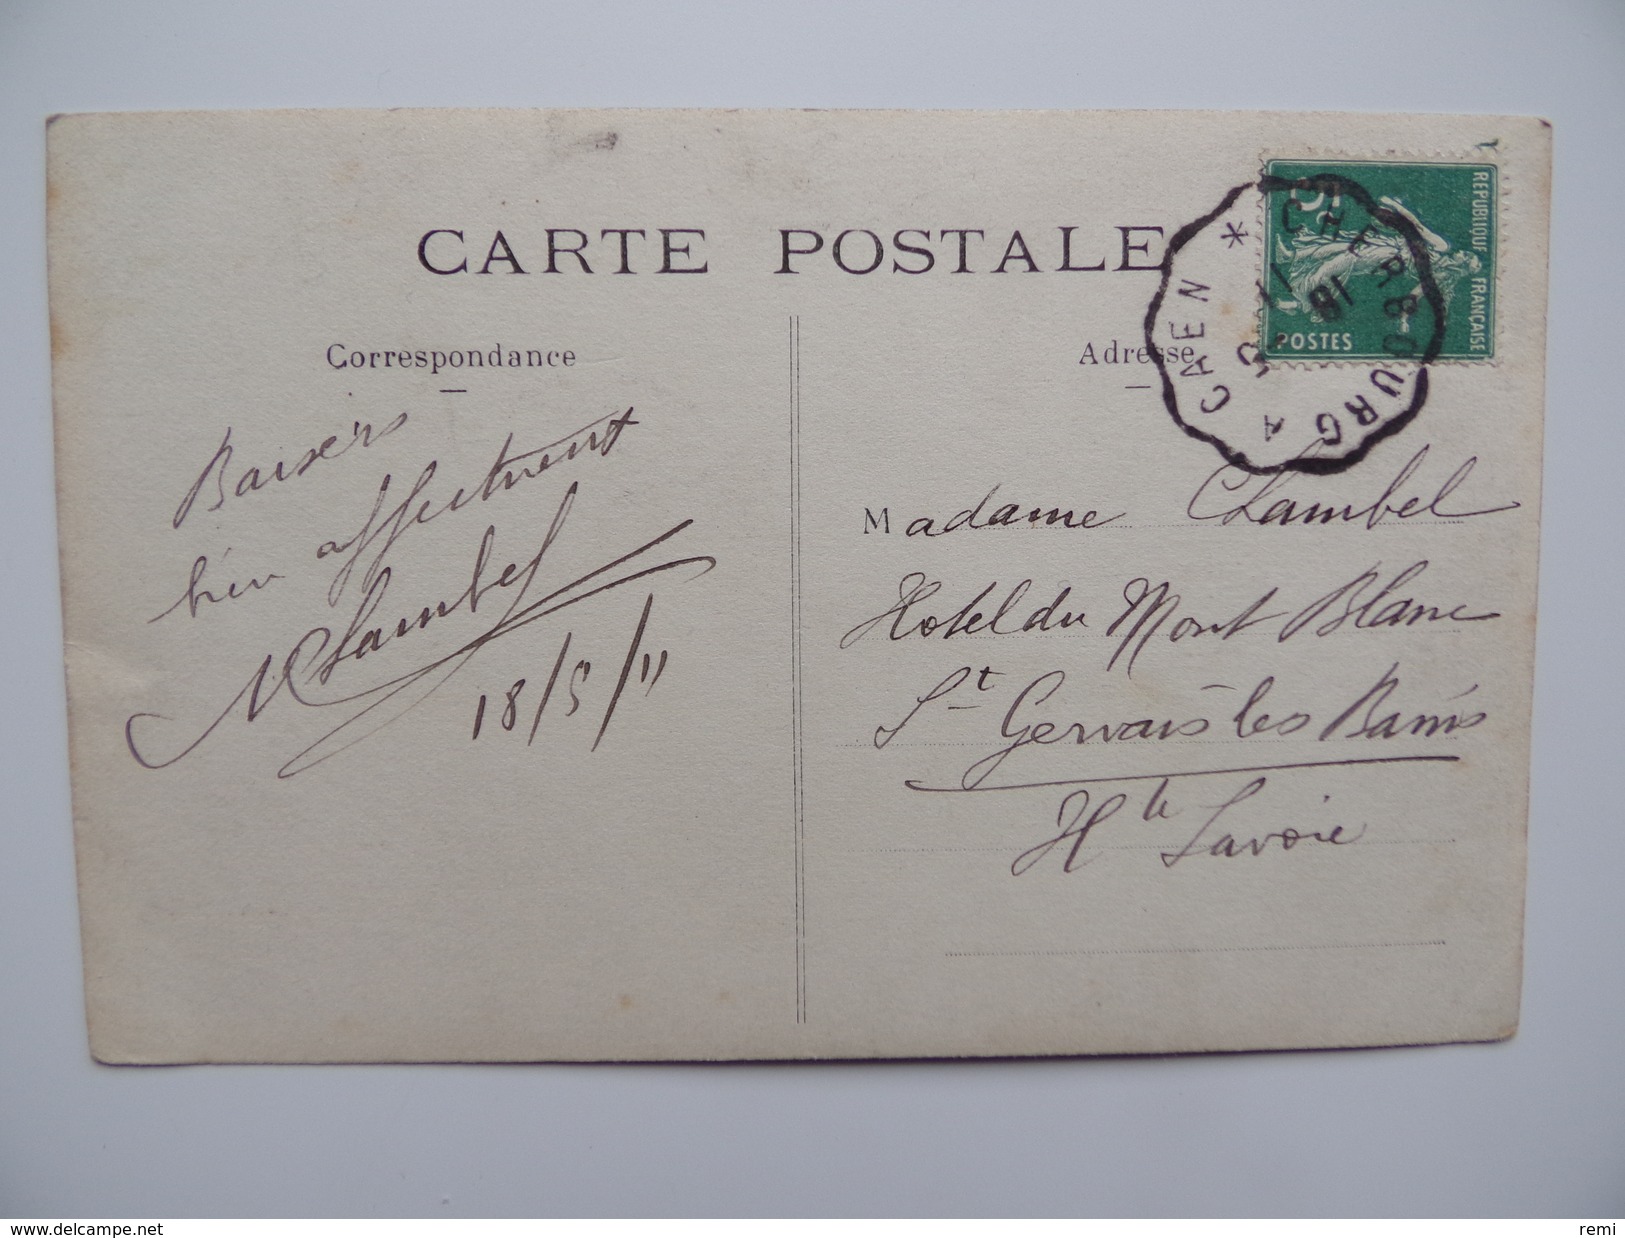 CARTE POSTALE
Correspondance
Baisers
bien affectment
MChambel
18/5/11
Adresse
Madame Chambel
Hotel du Mont Blanc
St Gervais les Bains
Hte Savoie
REPUBLIQUE FRANÇAISE
POSTES
5
CHERBOURG A CAEN *
18
11
www.delcampe.net
remi